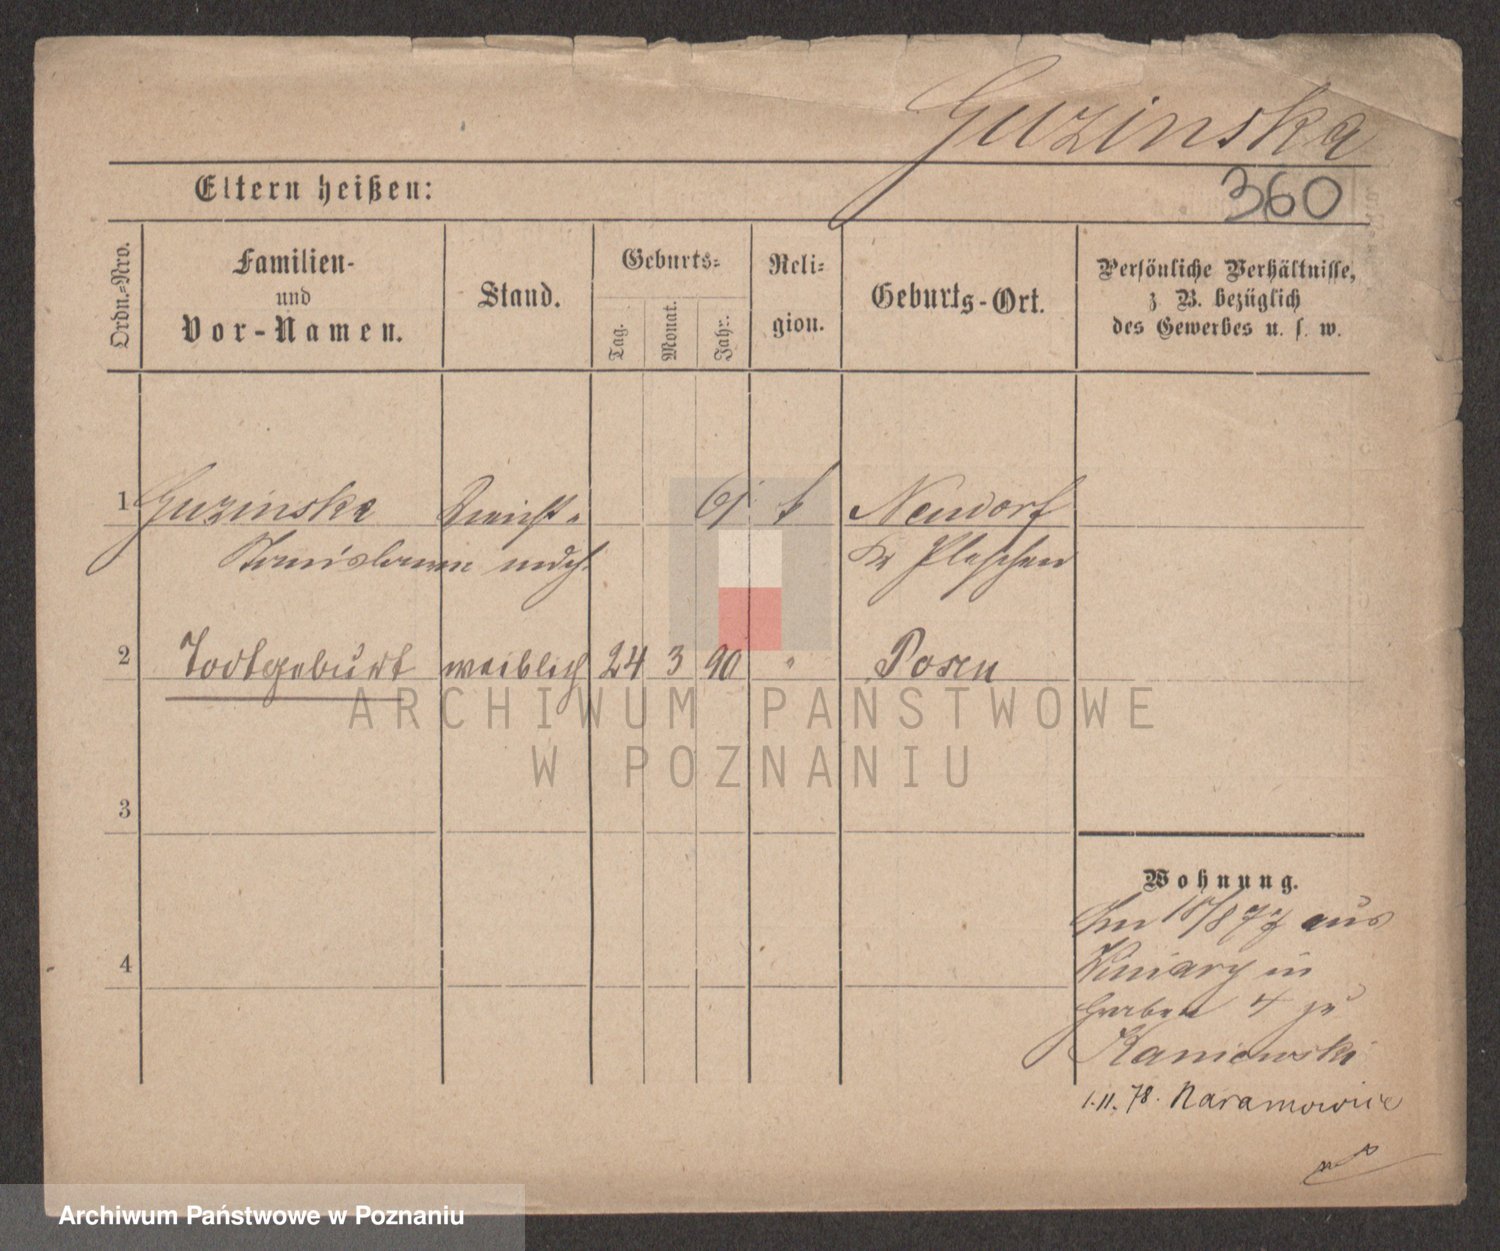 Guzinska
360
Eltern heißen:
Ordn.-Nro.
Familien-
und
Vor-Namen.
Stand.
Geburts-
Tag.
Monat.
Jahr.
Reli-
gion.
Geburts-Ort.
Persönliche Verhältnisse,
z. B. bezüglich
des Gewerbes u. s. w.
1 Guzinska 61 k Neudorf
Stanislawa Kr Pleschen
2 Todtgeburt weiblich 24 3 90 " Posen
ARCHIWUM PAŃSTWOWE
W POZNANIU
3
Wohnung.
15/8 77 aus
Winiary in
4
Graben 4 zu
Kaniewski
1.11.78. Naramowice
Archiwum Państwowe w Poznaniu